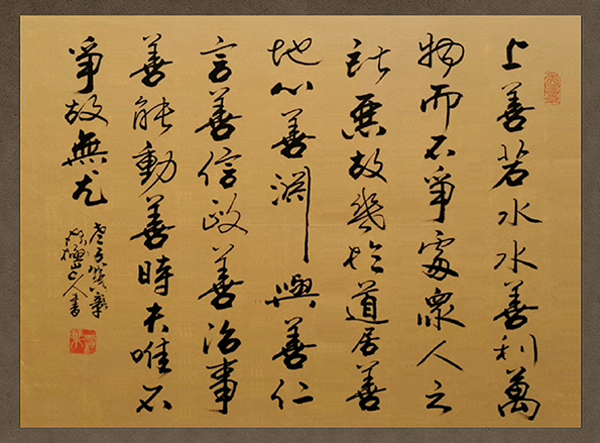 上善若水水善利萬
物而不爭處衆人之
所惡故幾於道居善
地心善淵與善仁
言善信政善治事
善能動善時夫唯不
爭故無尤
老子第八章
山人書